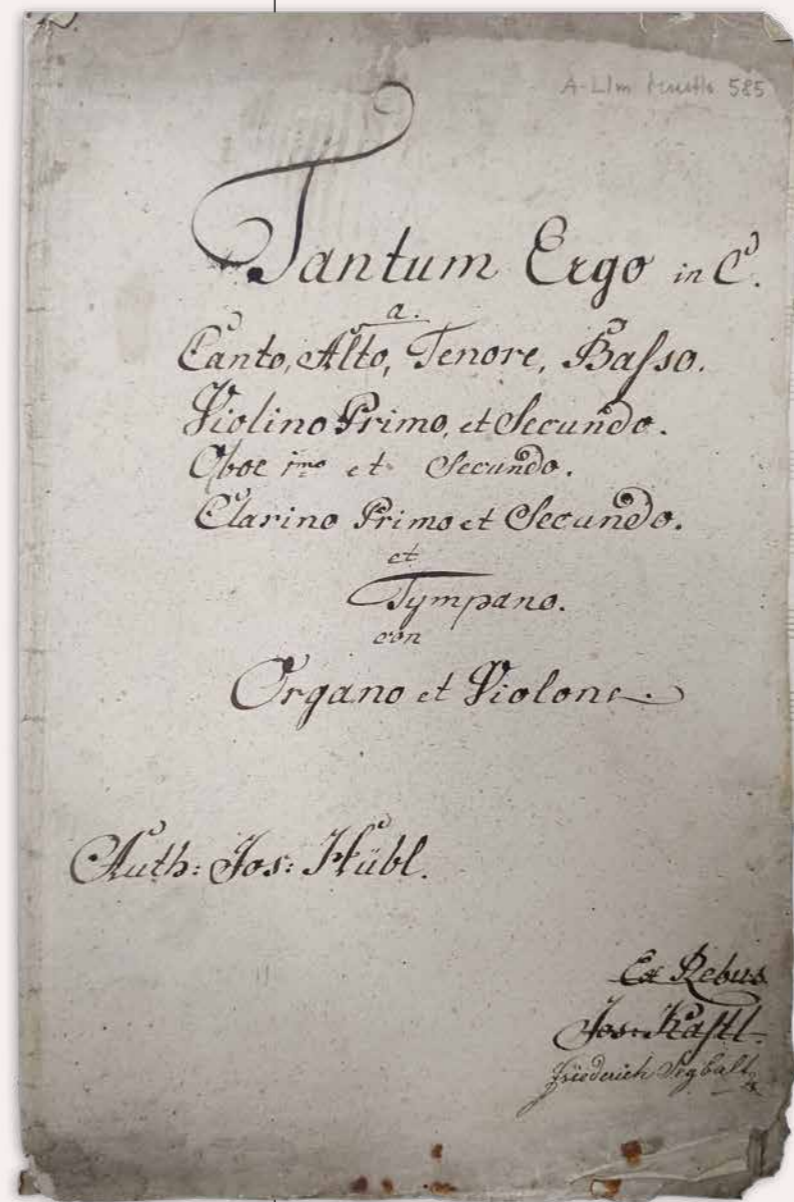 A-LIm 585
Tantum Ergo in C.
a.
Canto, Alto, Tenore, Baſso.
Violino Primo, et Secundo.
Oboe 1mo et Secundo.
Clarino Primo et Secundo.
et
Tympano.
con
Organo et Violone.
Auth: Jos: Hübl.
Ex Rebus
Jos: Kaſtl.
Friederich